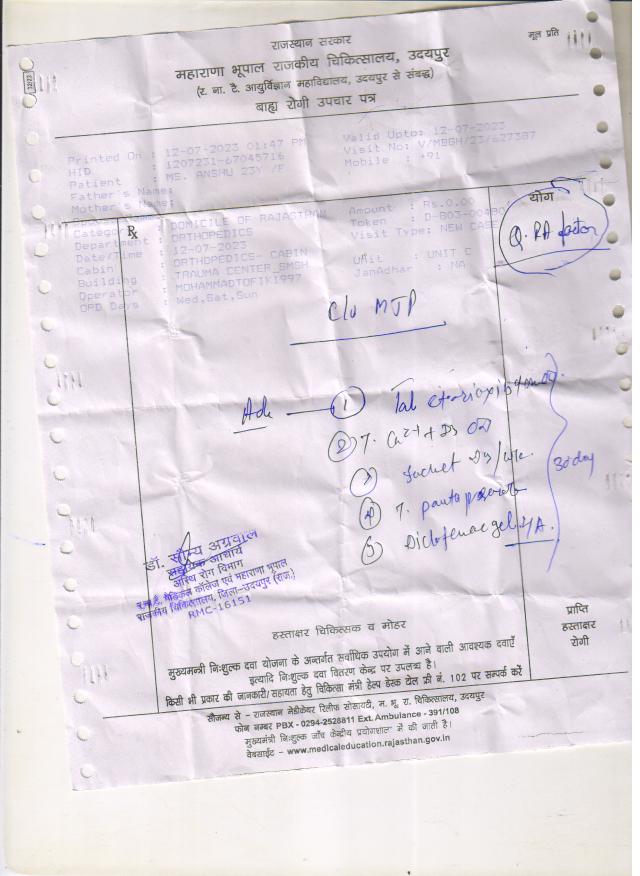 राजस्थान सरकार
मूल प्रति
महाराणा भूपाल राजकीय चिकित्सालय, उदयपुर
(र. ना. टै. आयुर्विज्ञान महाविद्यालय, उदयपुर से संबद्ध)
बाह्य रोगी उपचार पत्र
Printed On : 12-07-2023 01:47 PM Valid Upto: 12-07-2023
HID : 1207231-67045716 Visit No: V/MBGH/23/627387
Patient : MS. ANSHU 23Y /F Mobile : +91
Father's Name:
Mother's Name:
योग
Rx
Category : DOMICILE OF RAJASTHAN Amount : Rs.0.00
Department : ORTHOPEDICS Token : D-B03-
Date/Time : 12-07-2023 Visit Type: NEW CASE
Cabin : ORTHOPEDICS- CABIN Unit : UNIT C
Building : TRAUMA CENTER_GMSH JanAdhar : NA
Operator : MOHAMMADTOFIK1997
OPD Days : Wed,Sat,Sun
Q. RA factor
C/o MJP
Adv
1 Tab
2 T. Ca2+ + D3 OD
3 Sachet D3/wk.
4 T.
5 Diclofenac gel L/A.
30 day
डॉ. सौम्य अग्रवाल
सहायक आचार्य
अस्थि रोग विभाग
र.ना.टै. मेडिकल कॉलेज एवं महाराणा भूपाल
राजकीय चिकित्सालय, जिला-उदयपुर (राज.)
RMC-16151
हस्ताक्षर चिकित्सक व मोहर
प्राप्ति
हस्ताक्षर
रोगी
मुख्यमन्त्री निःशुल्क दवा योजना के अन्तर्गत सर्वाधिक उपयोग में आने वाली आवश्यक दवाएँ
इत्यादि निःशुल्क दवा वितरण केन्द्र पर उपलब्ध है।
किसी भी प्रकार की जानकारी/सहायता हेतु चिकित्सा मंत्री हेल्प डेस्क टोल फ्री नं. 102 पर सम्पर्क करें
सौजन्य से - राजस्थान मेडीकेयर रिलीफ सोसायटी, म. भू. रा. चिकित्सालय, उदयपुर
फोन नम्बर PBX - 0294-2528811 Ext. Ambulance - 391/108
मुख्यमंत्री निःशुल्क जाँच केंद्रीय प्रयोगशाला में की जाती है।
वेबसाईट - www.medicaleducation.rajasthan.gov.in